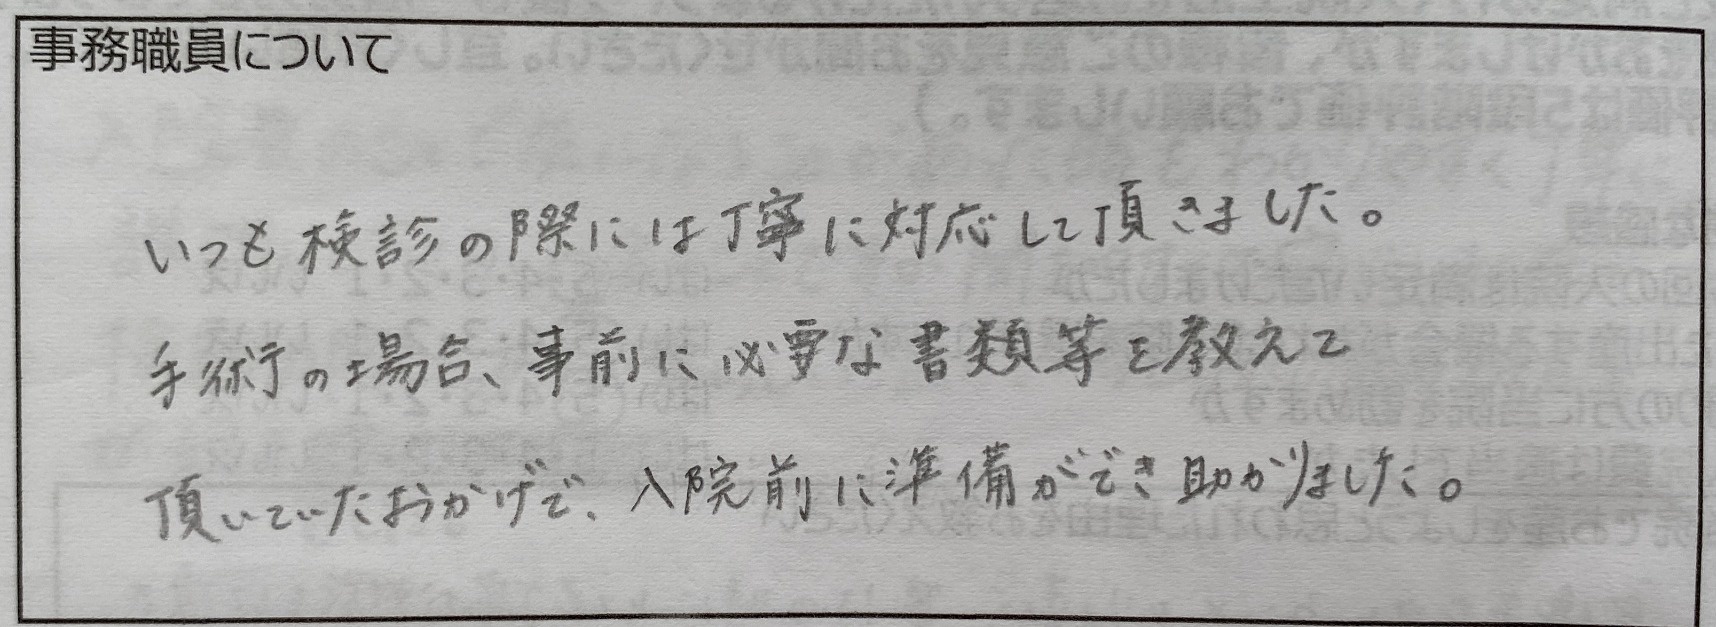 事務職員について
いつも検診の際には丁寧に対応して頂きました。
手術の場合、事前に必要な書類等を教えて
頂いていたおかげで、入院前に準備ができ助かりました。